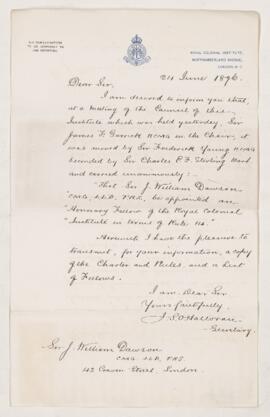 ALL COMMUNICATIONS
TO BE ADDRESSED TO
THE SECRETARY.
ROYAL COLONIAL INSTITUTE,
NORTHUMBERLAND AVENUE,
LONDON. W.C.
24 June 1896.
Dear Sir,
I am desired to inform you that,
at a Meeting of the Council of this
Institute which was held yesterday, Sir
James F. Garrick KCMG in the Chair, it
was moved by Sir Frederick Young KCMG
seconded by Sir Charles E. F. Stirling Bart
and carried unanimously:—
"That Sir J. William Dawson
"CMG, LLD, FRS, be appointed an
"Honorary Fellow of the Royal Colonial
"Institute in terms of Rule
Herewith I have the pleasure to
transmit, for your information, a copy
of the Charter and Rules, and a list
of Fellows.
I am Dear Sir
Yours faithfully
J. S. O'Halloran
Secretary.
Sir J. William Dawson
CMG. LLD. FRS.
42 Craven Street, London.